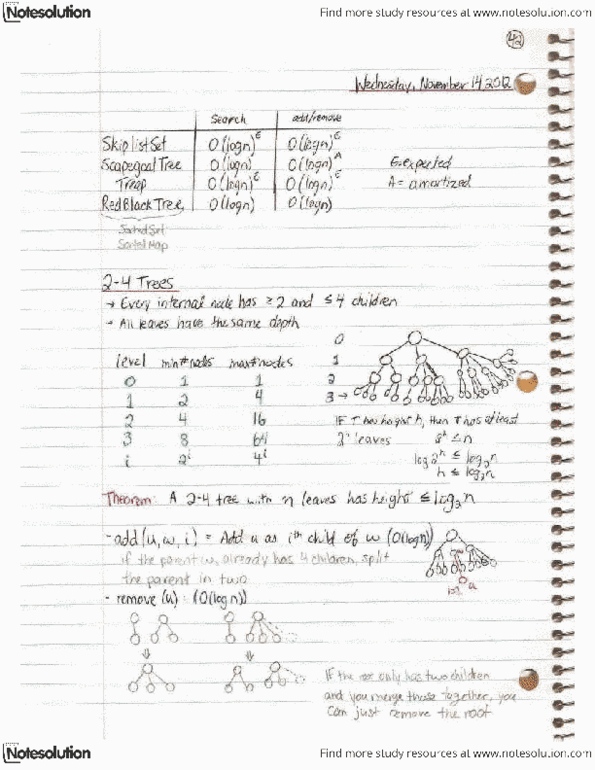 Notesolution
Find more study resources at www.notesolution.com
42
Wednesday, November 14 2012
Search add/remove
Skiplist Set O(logn)^E O(logn)^E
Scapegoat Tree O(logn) O(logn)^A E=expected
Treap O(logn)^E O(logn)^E A = amortized
Red Black Tree O(logn) O(logn)
Sorted Set
Sorted Map
2-4 Trees
→ Every internal node has ≥ 2 and ≤ 4 children
- All leaves have the same depth
level min#nodes max#nodes
0 1 1
1 2 4
2 4 16
3 8 64
i 2^i 4^i
0
1
2
3 →
IF T has height h, then T has at least
2^h leaves
≤ n
log 2^h ≤ log₂n
h ≤ log₂n
Theorem: A 2-4 tree with n leaves has height ≤ log₂n
- add(u, w, i) = Add u as i^th child of w (O(logn))
if the parent w, already has 4 children, split
the parent in two
- remove (u) = (O(logn))
IF the root only has two children
and you merge those together, you
can just remove the root
Notesolution
Find more study resources at www.notesolution.com